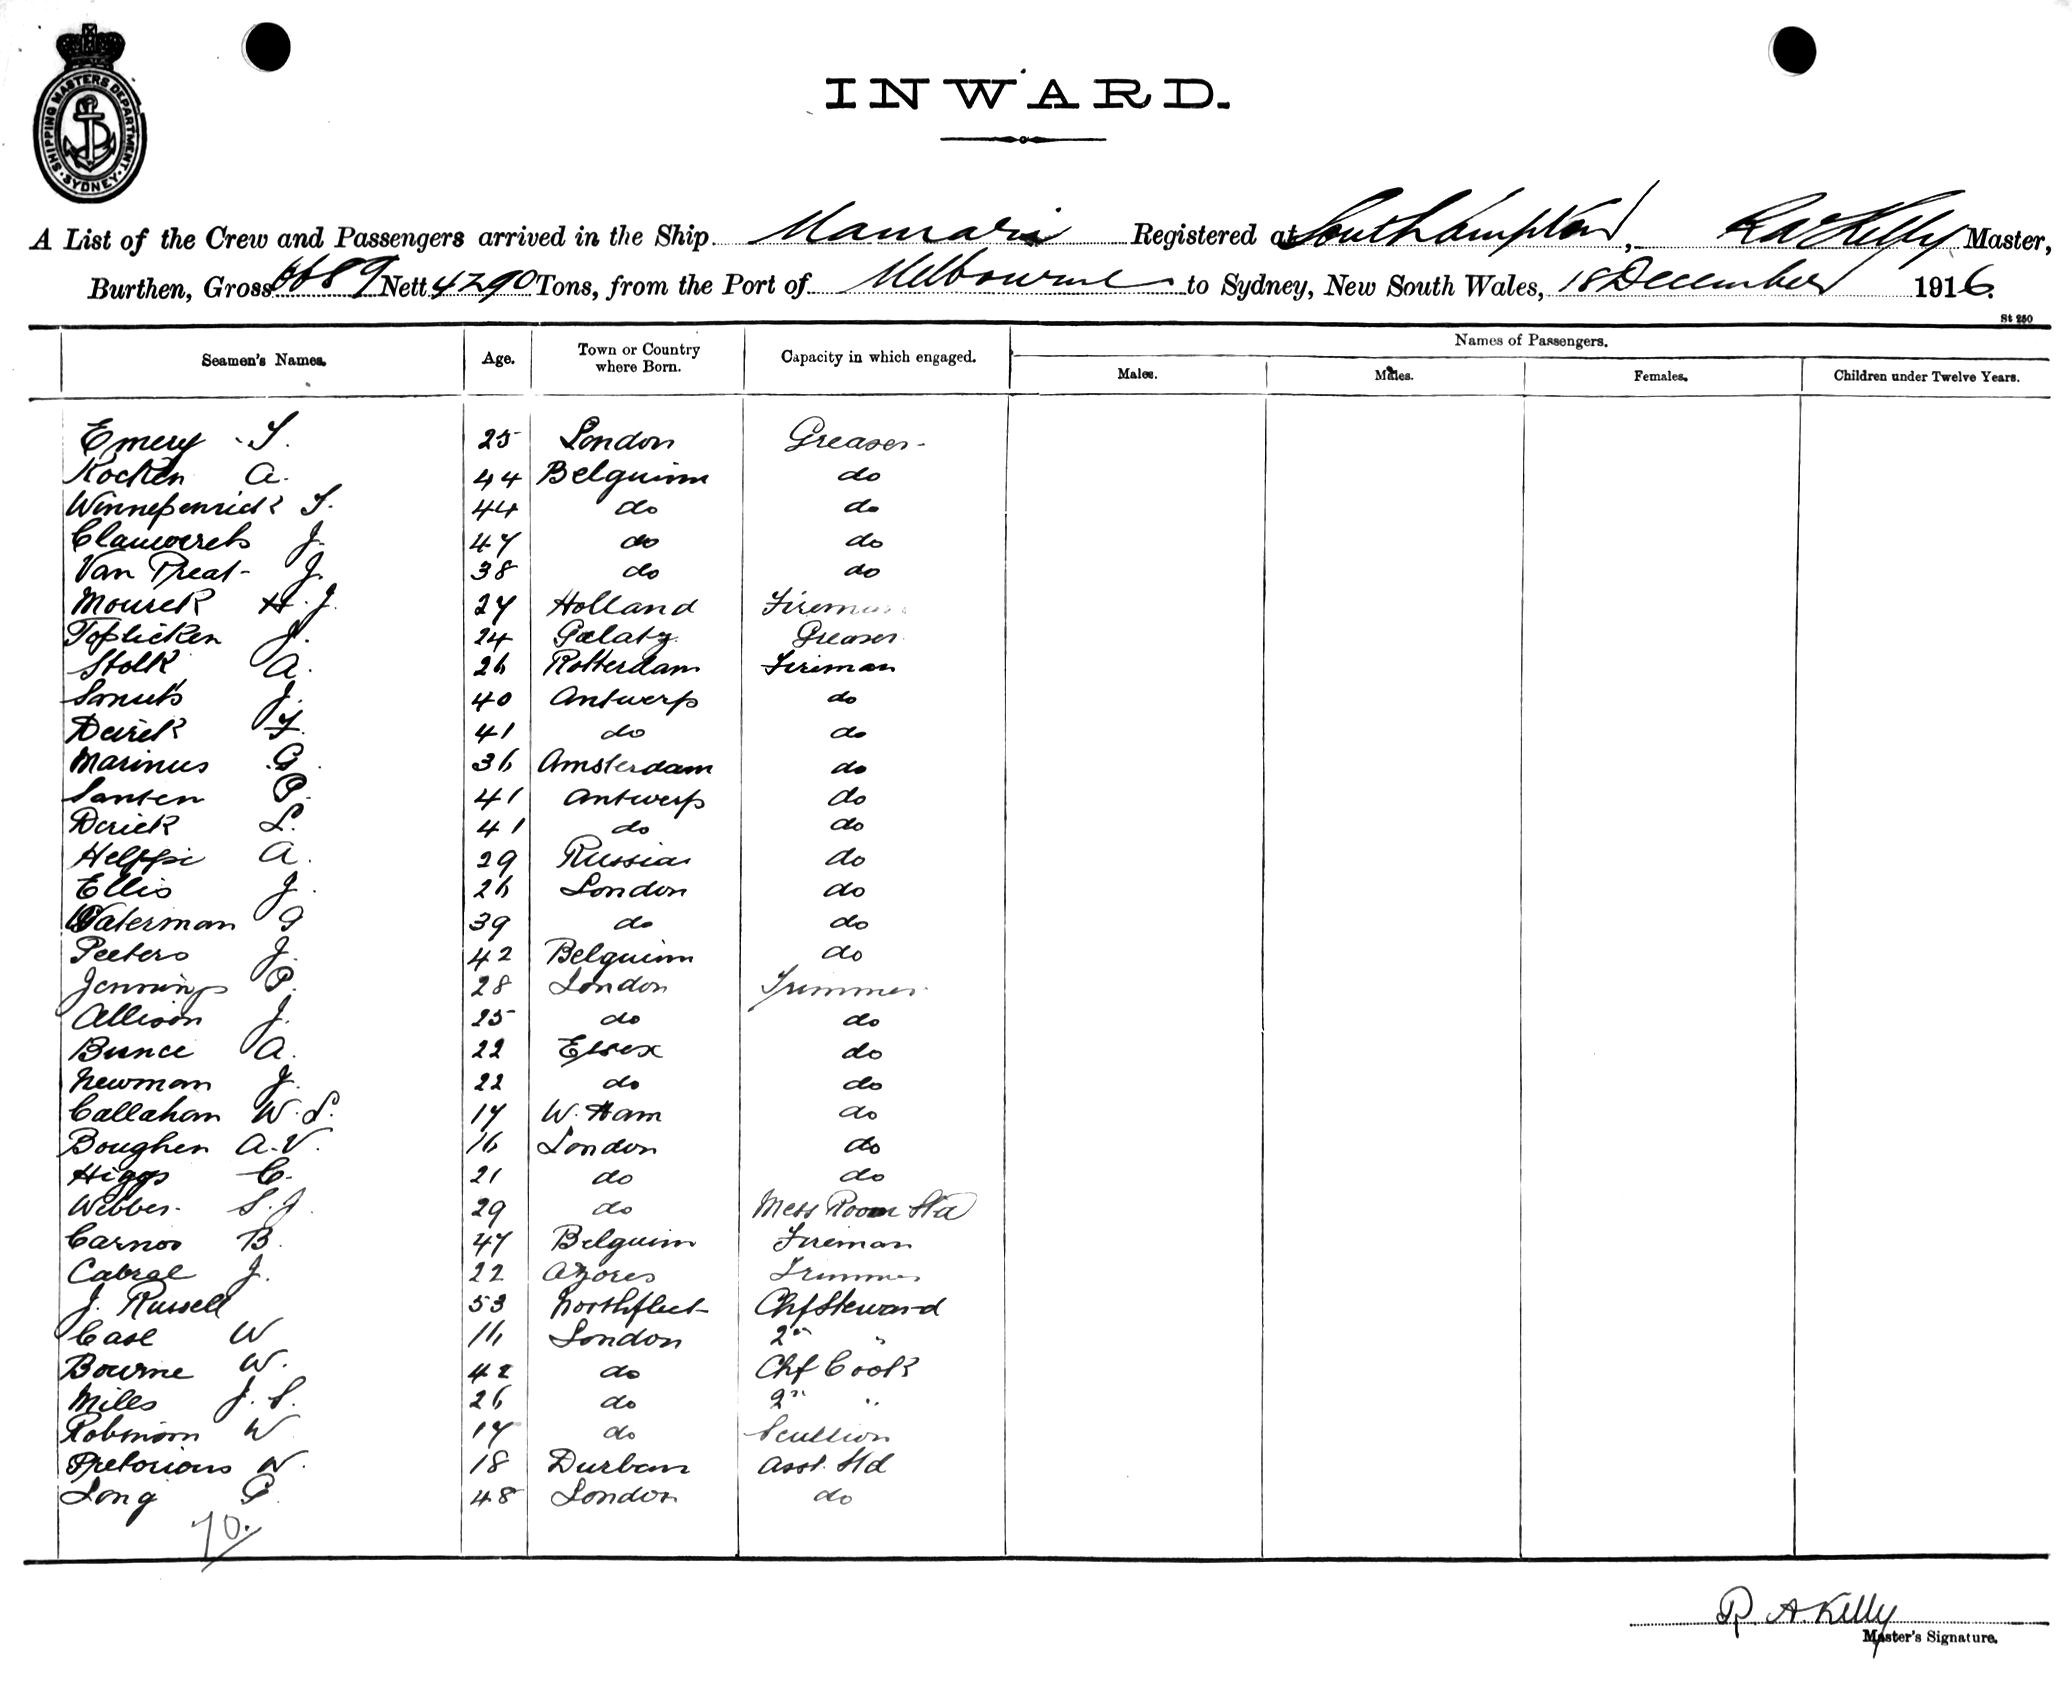 SHIPPING MASTERS DEPARTMENT. SYDNEY.
INWARD.
A List of the Crew and Passengers arrived in the Ship Mamari Registered at Southampton, R A Kelly Master,
Burthen, Gross 6689 Nett 4290 Tons, from the Port of Melbourne to Sydney, New South Wales, 18 December 1916.
St 250
Seamen's Names. Age. Town or Country where Born. Capacity in which engaged. Names of Passengers.
Males. Males. Females. Children under Twelve Years.
Emery 25 London Greaser
Kocken A. 44 Belguim do
Winnepenrick 44 do do
Clauwerets J. 47 do do
Van Preat J. 38 do do
Mourek H. J. 27 Holland Fireman
Toplicken J. 24 Galatz Greaser
Stolk A. 26 Rotterdam Fireman
Smuts J. 40 Antwerp do
Deirek 41 do do
Marinus G. 36 Amsterdam do
Santen P. 41 Antwerp do
Derick L. 41 do do
Helppi A. 29 Russia do
Ellis J. 26 London do
Waterman G 39 do do
Peeters J. 42 Belguim do
Jennings P. 28 London Trimmer
Allison J. 25 do do
Bunce A. 22 Essex do
Newman J. 22 do do
Callaham W. S. 17 W. Ham do
Boughen A. V. 16 London do
Higgs C. 21 do do
Webber S. J. 29 do Mess Room Std
Carnoo B. 47 Belguim Fireman
Cabral J. 22 Azores Trimmer
J. Russell 53 Northfleet Chf Steward
Case W 16 London 2nd "
Bourne W. 42 do Chf Cook
Mills J. S. 26 do 2nd "
Robinson W 17 do Scullion
Pretorious W. 18 Durban Asst. Std
Long G. 48 London do
70.
R. A Kelly
Master's Signature.